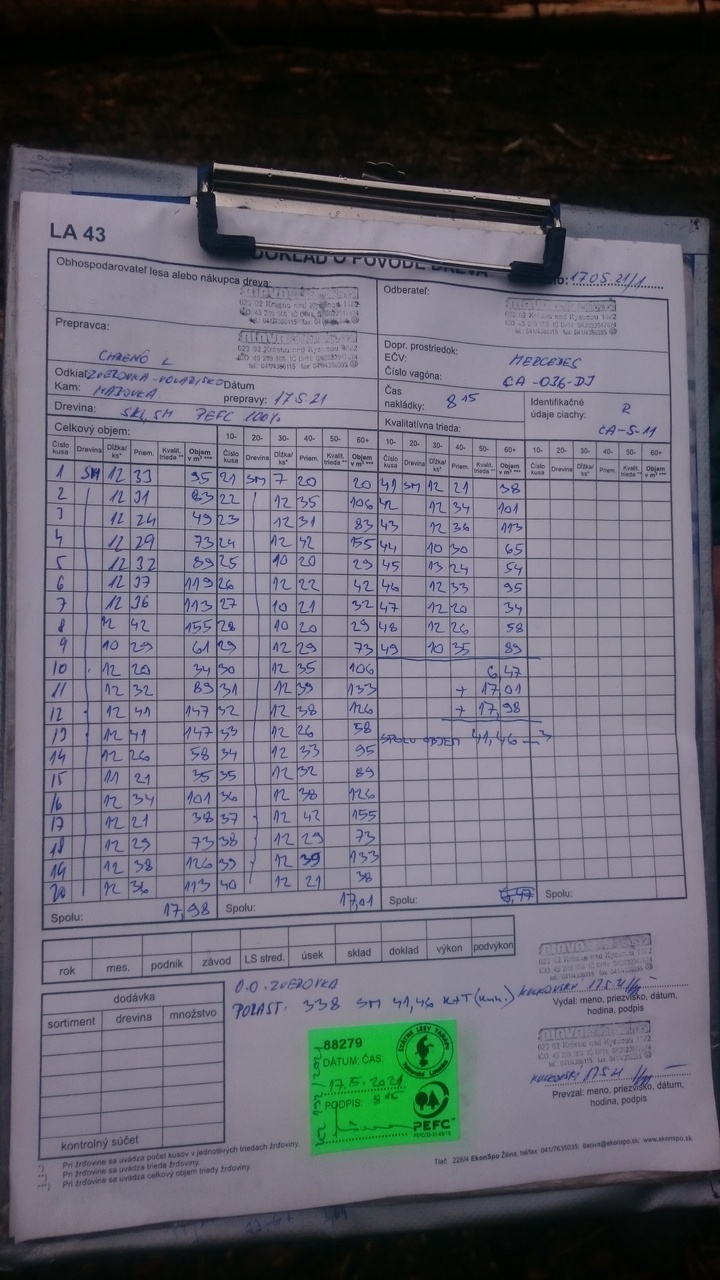 LA 43
DOKLAD O PÔVODE DREVA
17.05.21/1
Obhospodarovateľ lesa alebo nákupca dreva:
Odberateľ:
Prepravca:
Dopr. prostriedok:
EČV:
MERCEDES
Číslo vagóna:
CA-036-DJ
Odkiaľ:
Dátum
Kam: prepravy: 17.5.21
Čas
nakládky: 8 15
Identifikačné
údaje ciachy: R
CA-S-11
Drevina: SM PEFC 100%
Kvalitatívna trieda:
Celkový objem: 10- 20- 30- 40- 50- 60+ 10- 20- 30- 40- 50- 60+ 10- 20- 30- 40- 50- 60+
Číslo kusa Drevina Dĺžka/ ks* Priem. Kvalit. trieda ** Objem v m³ *** Číslo kusa Drevina Dĺžka/ ks* Priem. Kvalit. trieda ** Objem v m³ *** Číslo kusa Drevina Dĺžka/ ks* Priem. Kvalit. trieda ** Objem v m³ *** Číslo kusa Drevina Dĺžka/ ks* Priem. Kvalit. trieda ** Objem v m³ ***
1 SM 12 33 95 21 SM 7 20 20 41 SM 12 21 38
2 12 31 83 22 12 35 106 42 12 34 101
3 12 24 49 23 12 31 83 43 12 36 113
4 12 29 73 24 12 42 155 44 10 30 65
5 12 32 89 25 10 20 29 45 13 24 54
6 12 37 119 26 12 22 42 46 12 33 95
7 12 36 113 27 10 21 32 47 12 20 34
8 12 42 155 28 10 20 29 48 12 26 58
9 10 29 61 29 12 29 73 49 10 35 89
10 12 20 34 30 12 35 106 6,47
11 12 32 89 31 12 39 133 + 17,01
12 12 41 147 32 12 38 126 + 17,98
13 12 41 147 33 12 26 58 SPOLU OBJEM 41,46 m3
14 12 26 58 34 12 33 95
15 11 21 35 35 12 32 89
16 12 34 101 36 12 38 126
17 12 21 38 37 12 42 155
18 12 29 73 38 12 29 73
19 12 38 126 39 12 39 133
20 12 36 113 40 12 21 38
Spolu: 17,98 Spolu: 17,01 6,47 Spolu:
rok mes. podnik závod LS stred. úsek sklad doklad výkon podvýkon
O.O. ZVEROVKA
PORAST. 338 SM 41,46
17.5.21
Vydal: meno, priezvisko, dátum,
hodina, podpis
dodávka
sortiment drevina množstvo
kontrolný súčet
88279
DÁTUM, ČAS:
17.5.2021
8 15
PODPIS:
ŠTÁTNE LESY TANAPU
PEFC
17.5.21
Prevzal: meno, priezvisko, dátum,
hodina, podpis
Pri žrďovine sa uvádza počet kusov v jednotlivých triedach žrďoviny.
Pri žrďovine sa uvádza trieda žrďoviny.
Pri žrďovine sa uvádza celkový objem triedy žrďoviny.
Tlač: 228/4 EkonSpo Žilina, tel/fax. 041/7635035; www.ekonspo.sk